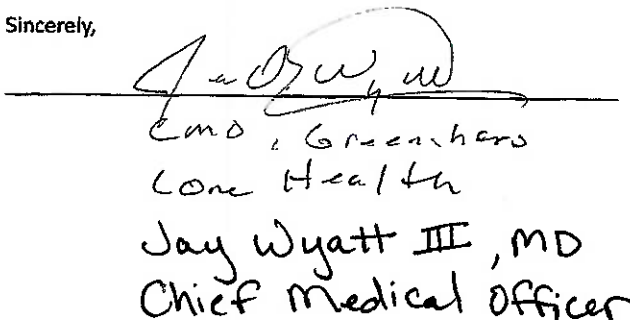 Sincerely,
CMO, Greensboro
Cone Health
Jay Wyatt III, MD
Chief Medical Officer